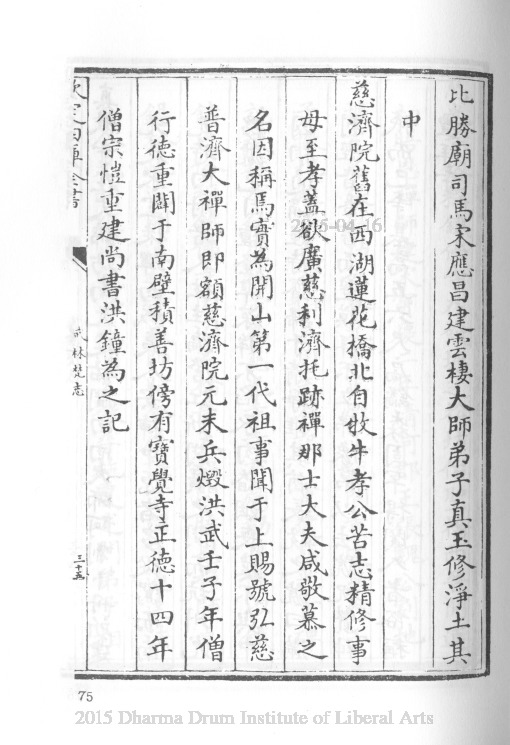 比勝廟司馬宋應昌建雲棲大師弟子真玉修淨土其
中
慈濟院舊在西湖蓮花橋北自牧牛孝公苦志精修事
母至孝蓋欲廣慈利濟托跡禪那士大夫咸敬慕之
名因稱馬實為開山第一代祖事聞于上賜號弘慈
普濟大禪師即額慈濟院元末兵燬洪武壬子年僧
行德重闢于南壁積善坊傍有寶覺寺正德十四年
僧宗愷重建尚書洪鐘為之記
欽定四庫全書
武林梵志
三十五
75
2015-04-16
2015 Dharma Drum Institute of Liberal Arts